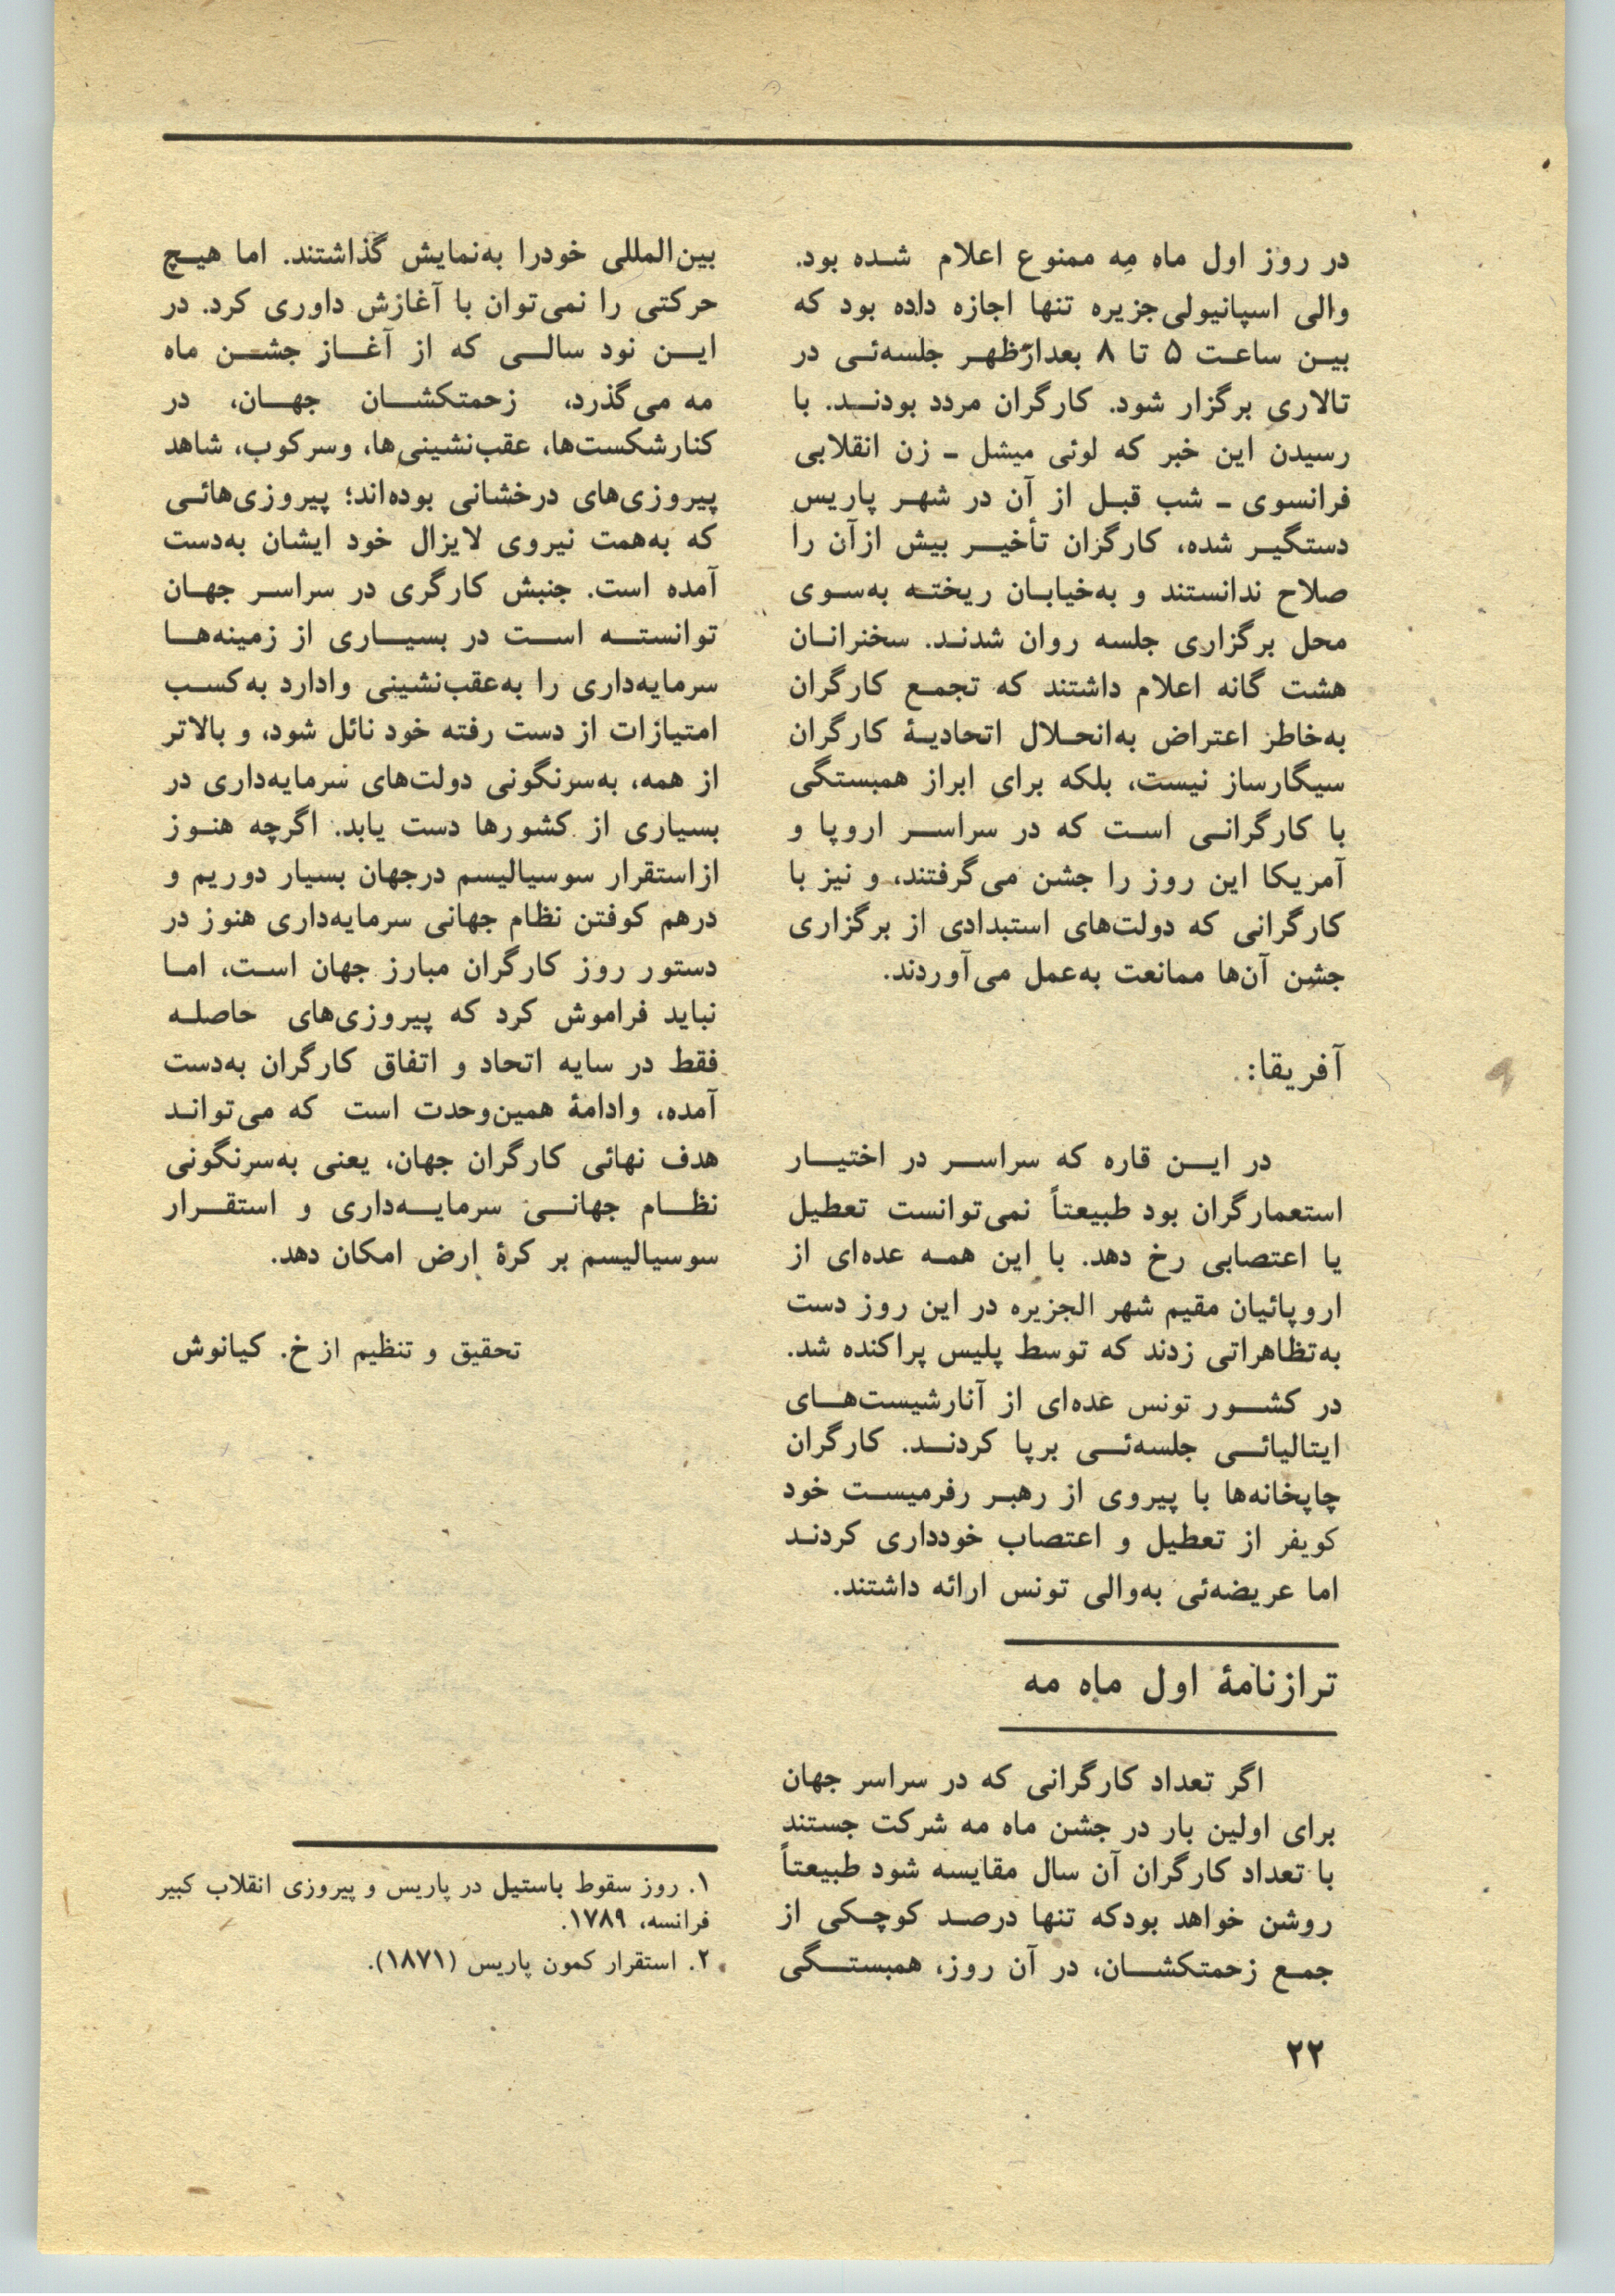 در روز اول ماه مِه ممنوع اعلام شده بود.
والی اسپانیولی‌جزیره تنها اجازه داده بود که
بین ساعت ۵ تا ۸ بعدازظهر جلسه‌ئی در
تالاری برگزار شود. کارگران مردد بودند. با
رسیدن این خبر که لوئی میشل ـ زن انقلابی
فرانسوی ـ شب قبل از آن در شهر پاریس
دستگیر شده، کارگزان تأخیر بیش ازآن را
صلاح ندانستند و به‌خیابان ریخته به‌سوی
محل برگزاری جلسه روان شدند. سخنرانان
هشت گانه اعلام داشتند که تجمع کارگران
به‌خاطر اعتراض به‌انحلال اتحادیهٔ کارگران
سیگارساز نیست، بلکه برای ابراز همبستگی
با کارگرانی است که در سراسر اروپا و
آمریکا این روز را جشن می‌گرفتند، و نیز با
کارگرانی که دولت‌های استبدادی از برگزاری
جشن آن‌ها ممانعت به‌عمل می‌آوردند.
آفریقا:
در این قاره که سراسر در اختیار
استعمارگران بود طبیعتاً نمی‌توانست تعطیل
یا اعتصابی رخ دهد. با این همه عده‌ای از
اروپائیان مقیم شهر الجزیره در این روز دست
به‌تظاهراتی زدند که توسط پلیس پراکنده شد.
در کشور تونس عده‌ای از آنارشیست‌های
ایتالیائی جلسه‌ئی برپا کردند. کارگران
چاپخانه‌ها با پیروی از رهبر رفرمیست خود
کویفر از تعطیل و اعتصاب خودداری کردند
اما عریضه‌ئی به‌والی تونس ارائه داشتند.
ترازنامهٔ اول ماه مه
اگر تعداد کارگرانی که در سراسر جهان
برای اولین بار در جشن ماه مه شرکت جستند
با تعداد کارگران آن سال مقایسه شود طبیعتاً
روشن خواهد بودکه تنها درصد کوچکی از
جمع زحمتکشان، در آن روز، همبستگی
بین‌المللی خودرا به‌نمایش گذاشتند. اما هیچ
حرکتی را نمی‌توان با آغازش داوری کرد. در
این نود سالی که از آغاز جشن ماه
مه می‌گذرد، زحمتکشان جهان، در
کنارشکست‌ها، عقب‌نشینی‌ها، وسرکوب، شاهد
پیروزی‌های درخشانی بوده‌اند؛ پیروزی‌هائی
که به‌همت نیروی لایزال خود ایشان به‌دست
آمده است. جنبش کارگری در سراسر جهان
توانسته است در بسیاری از زمینه‌ها
سرمایه‌داری را به‌عقب‌نشینی وادارد به‌کسب
امتیازات از دست رفته خود نائل شود، و بالاتر
از همه، به‌سرنگونی دولت‌های سرمایه‌داری در
بسیاری از کشورها دست یابد. اگرچه هنوز
ازاستقرار سوسیالیسم درجهان بسیار دوریم و
درهم کوفتن نظام جهانی سرمایه‌داری هنوز در
دستور روز کارگران مبارز جهان است، اما
نباید فراموش کرد که پیروزی‌های حاصله
فقط در سایه اتحاد و اتفاق کارگران به‌دست
آمده، وادامهٔ همین‌وحدت است که می‌تواند
هدف نهائی کارگران جهان، یعنی به‌سرنگونی
نظام جهانی سرمایه‌داری و استقرار
سوسیالیسم بر کرهٔ ارض امکان دهد.
تحقیق و تنظیم از خ. کیانوش
۱. روز سقوط باستیل در پاریس و پیروزی انقلاب کبیر
فرانسه، ۱۷۸۹.
۲. استقرار کمون پاریس (۱۸۷۱).
۲۲